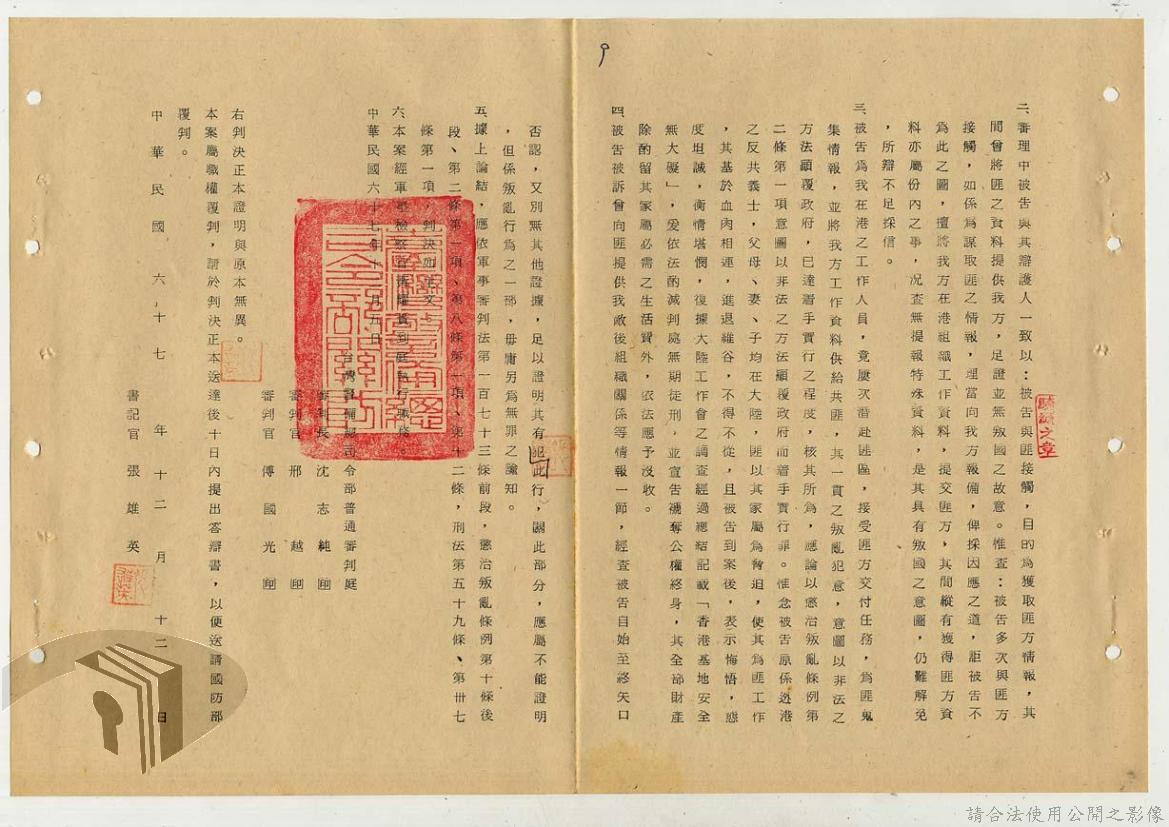 9
二、審理中被告與其辯護人一致以：被告與匪接觸，目的為獲取匪方情報，其
間曾將匪之資料提供我方，足證並無叛國之故意。惟查：被告多次與匪方
接觸，如係為謀取匪之情報，理當向我方報備，俾採因應之道，詎被告不
為此之圖，擅將我方在港組織工作資料，提交匪方，其間縱有獲得匪方資
料亦屬份內之事，况查無提報特殊資料，是其具有叛國之意圖，仍難解免
，所辯不足採信。
三、被告為我在港之工作人員，竟屢次潛赴匪區，接受匪方交付任務，為匪蒐
集情報，並將我方工作資料供給共匪，其一貫之叛亂犯意，意圖以非法之
方法顛覆政府，已達着手實行之程度，核其所為，應論以懲治叛亂條例第
二條第一項意圖以非法之方法顛覆政府而着手實行罪。惟念被告原係逃港
之反共義士，父母、妻、子均在大陸，匪以其家屬為脅迫，使其為匪工作
，其基於血肉相連，進退維谷，不得不從，且被告到案後，表示悔悟，態
度坦誠，衡情堪憫，復據大陸工作會之調查經過總結記載「香港基地安全
無大礙」，爰依法酌減判處無期徒刑，並宣告褫奪公權終身，其全部財產
除酌留其家屬必需之生活費外，依法應予沒收。
四、被告被訴曾向匪提供我敵後組織關係等情報一節，經查被告自始至終矢口
否認，又別無其他證據，足以證明其有此行，關此部分，應屬不能證明
，但係叛亂行為之一部，毋庸另為無罪之諭知。
五、據上論結，應依軍事審判法第一百七十三條前段，懲治叛亂條例第十條後
段、第二條第一項、第八條第一項、第十二條，刑法第五十九條、第卅七
條第一項，判決如主文。
六、本案經軍事檢察官 到庭執行職務。
中華民國六十七年十一月五日
台灣警備總司令部普通審判庭
審判長 沈志純 印
審判官 邢越 印
審判官 傅國光 印
右判決正本證明與原本無異。
本案屬職權覆判，請於判決正本送達後十日內提出答辯書，以便送請國防部
覆判。
書記官 張雄英
中華民國六十七年十二月十二日
騎縫之章
請合法使用公開之影像